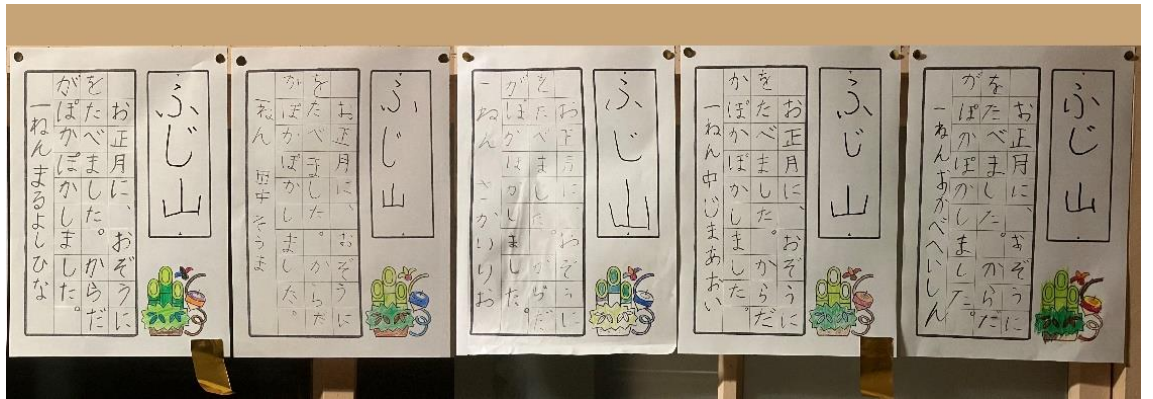 ふじ山
お正月に、おぞうに
をたべました。からだ
がぽかぽかしました。
一ねん まるよしひな
ふじ山
お正月に、おぞうに
をたべました。からだ
がぽかぽかしました。
一ねん そうま
ふじ山
お正月に、おぞうに
をたべました。からだ
がぽかぽかしました。
一ねん
ふじ山
お正月に、おぞうに
をたべました。からだ
がぽかぽかしました。
一ねん 中じまあおい
ふじ山
お正月に、おぞうに
をたべました。からだ
がぽかぽかしました。
一ねん